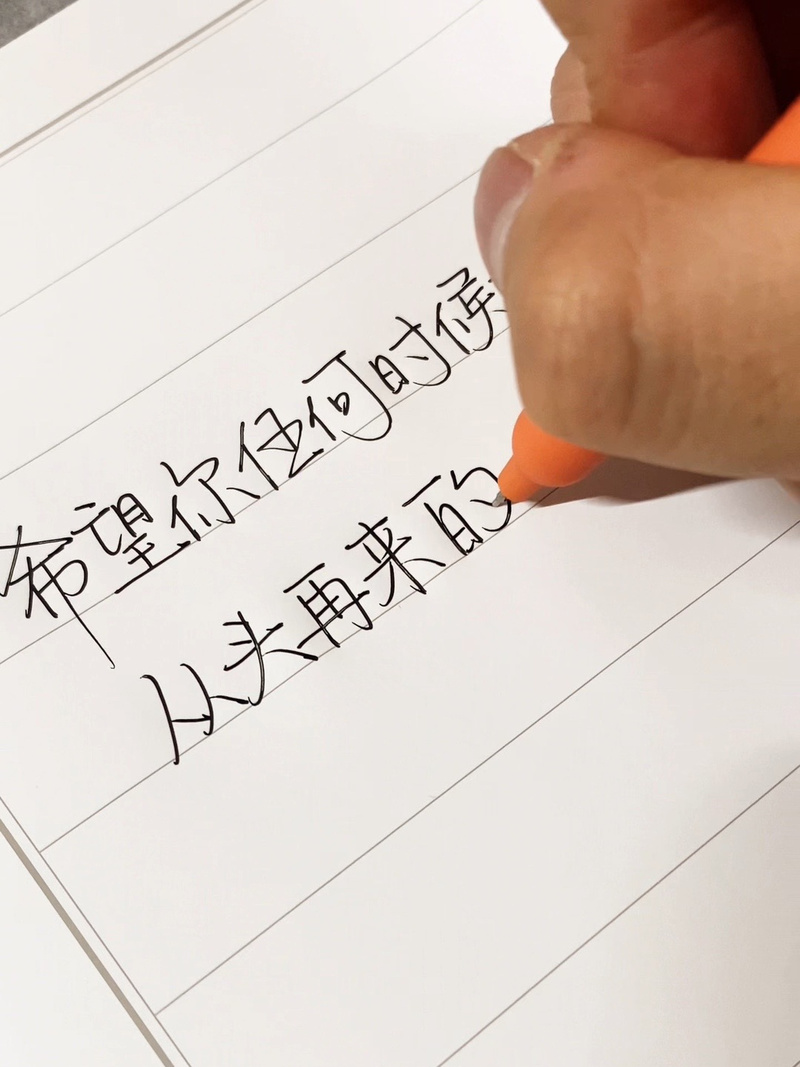 希望你任何时候
从头再来的